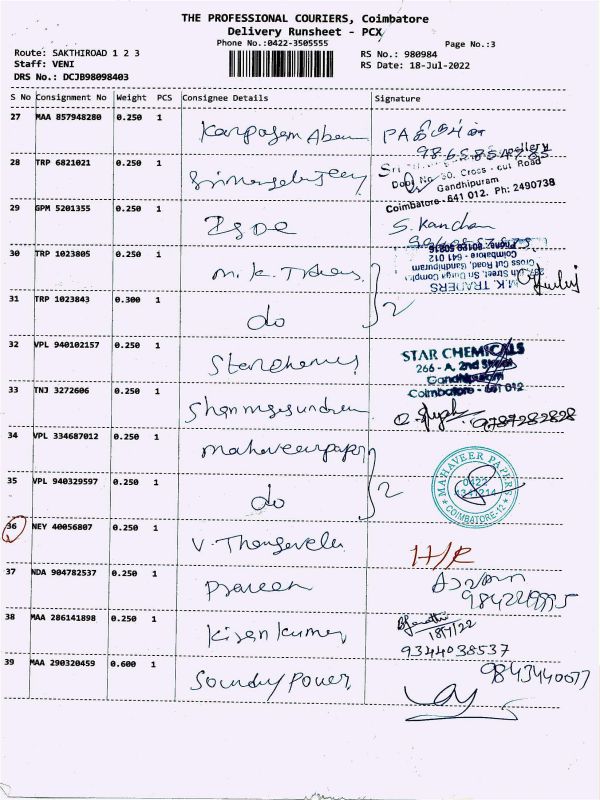 THE PROFESSIONAL COURIERS, Coimbatore
Delivery Runsheet - PCX
Phone No.:0422-3505555
Page No.:3
Route: SAKTHIROAD 1 2 3
RS No.: 980984
Staff: VENI
RS Date: 18-Jul-2022
DRS No.: DCJB98098403
S No Consignment No Weight PCS Consignee Details Signature
27 MAA 857948280 0.250 1
28 TRP 6821021 0.250 1
Door No 30, Cross - cut Road
Gandhipuram
Coimbatore - 641 012. Ph: 2490738
29 GPM 5201355 0.250 1 S. Kanchan
30 TRP 1023805 0.250 1 M. K. Traders
Cross Cut Road, Gandhipuram
Coimbatore - 641 012
M.K. TRADERS
31 TRP 1023843 0.300 1 do 2
32 VPL 940102157 0.250 1 Starchemics
STAR CHEMICALS
266 - A, 2nd Street
Gandhipuram
Coimbatore - 641 012
33 TNJ 3272606 0.250 1 Shanmugasundram 9787282828
34 VPL 334687012 0.250 1 mahaveerpapers
MAHAVEER PAPERS
0422
COIMBATORE-12
35 VPL 940329597 0.250 1 do 2
36 NEY 40056807 0.250 1 V. Thangavelu H/R
37 NDA 904782537 0.250 1 Praveen
38 MAA 286141898 0.250 1 Kiran Kumar
18/7/22
9344038537
39 MAA 290320459 0.600 1 Soundry Power